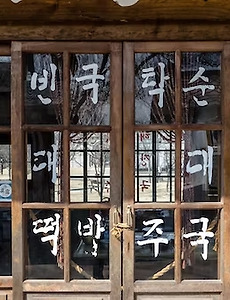 빈대떡
국밥
탁주
순대국